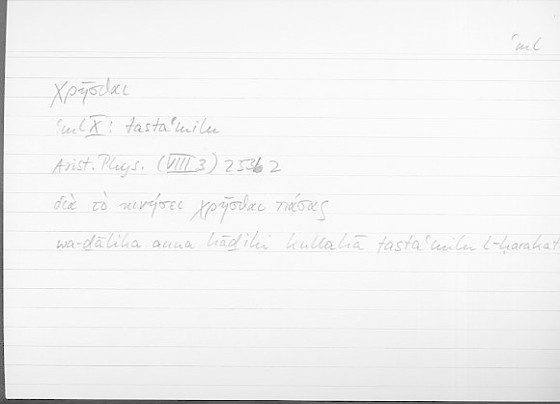 ʿml
χρῆσθαι
ʿml X: tastaʿmilu
Arist. Phys. (VIII 3) 253b2
διὰ τὸ κινήσει χρῆσθαι πάσας
wa-ḏālika anna hāḏihī kullahā tastaʿmilu l-ḥarakat